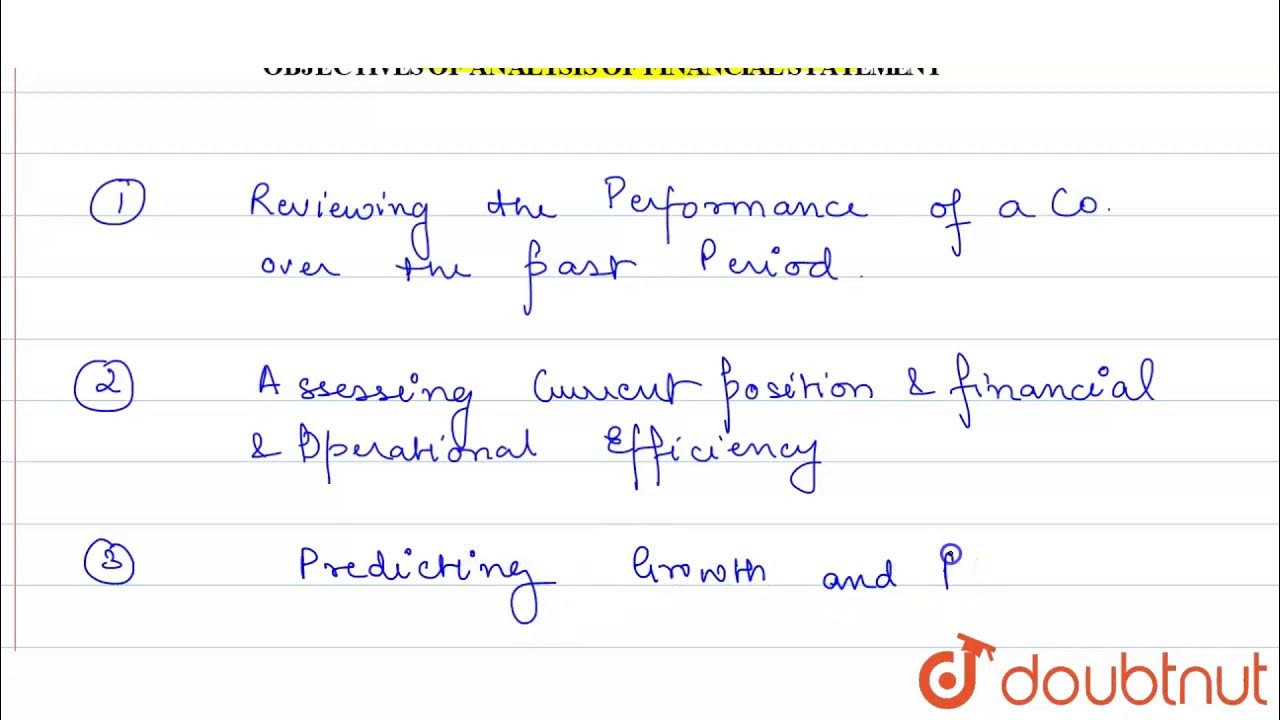 OBJECTIVES OF ANALYSIS OF FINANCIAL STATEMENT
1 Reviewing the Performance of a Co.
over the past Period.
2 Assessing Current position & financial
& Operational Efficiency
3 Predicting Growth and P
doubtnut